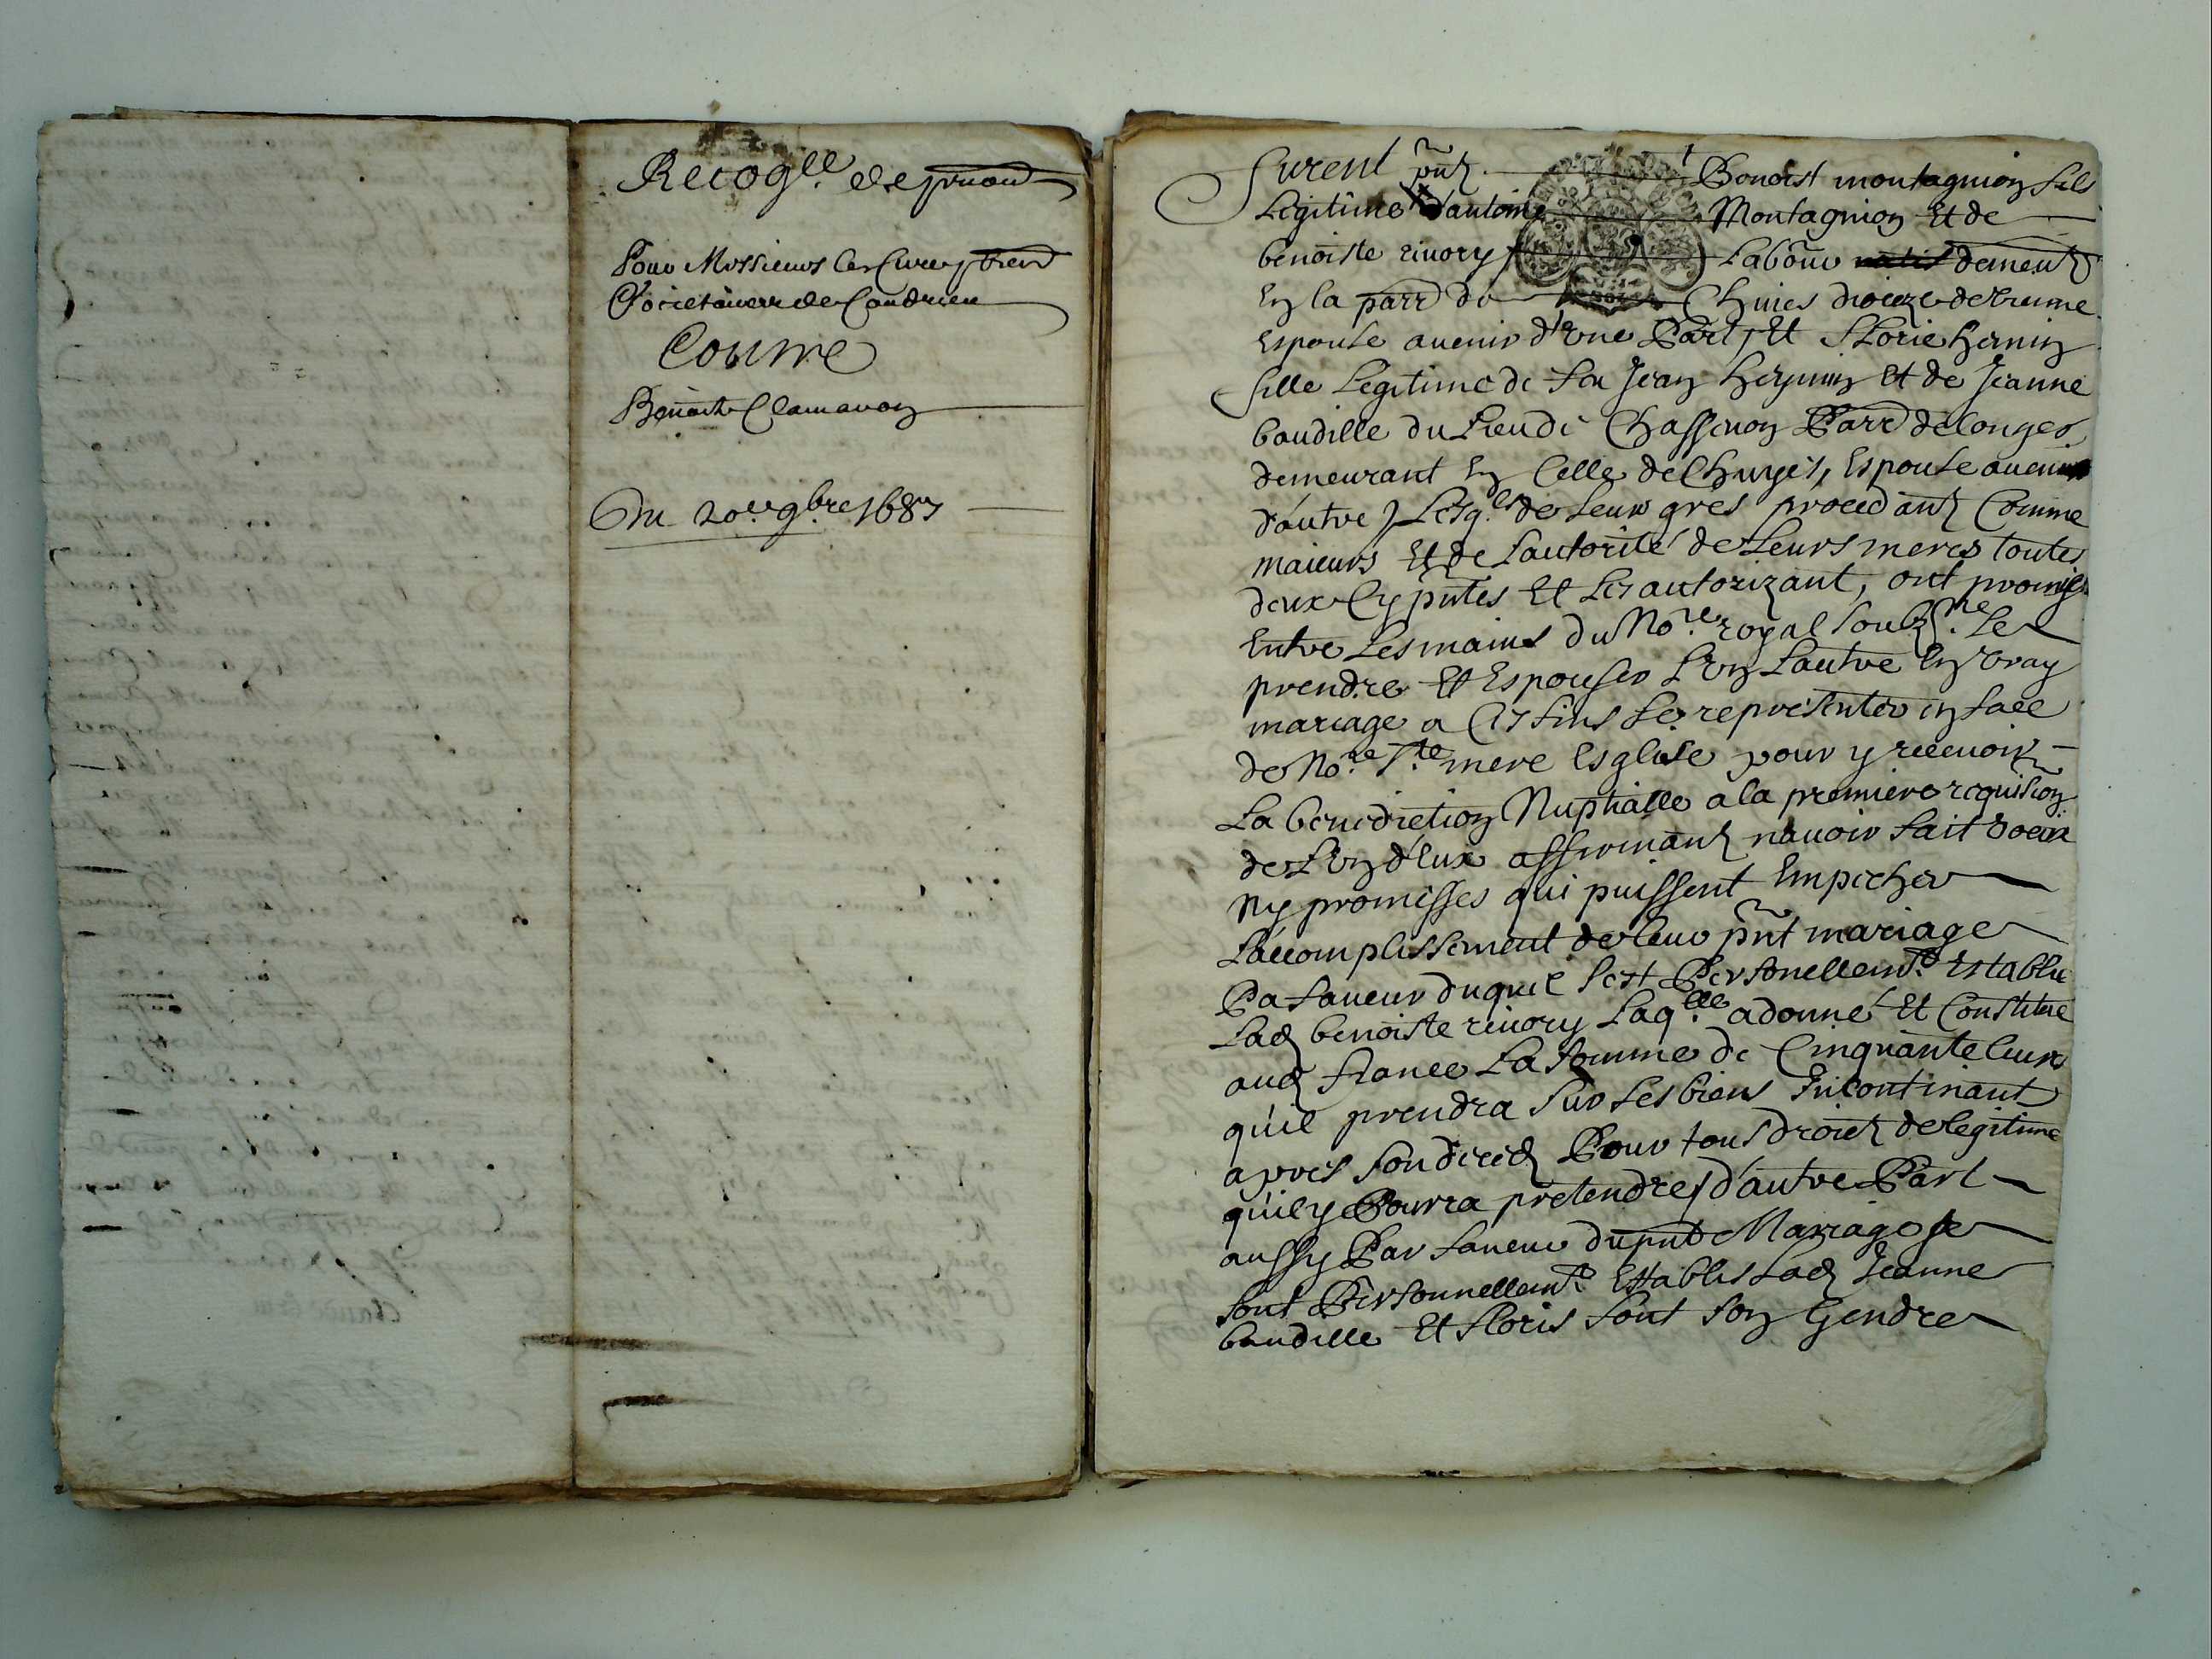 Recog.lle de pnaon
Pour Messieurs les Curé, pbres
Societaires de Condrieu
Contre
Benoiste Clamaron
Du 20.e 9.bre 1687
Furent pnts Benoist montagnion fils
Legitime d'antoine Montagnion Et de
benoiste riuory Labour demeut
En la parr de Chuies dioceze de Vienne
Espoule auenir d'Vne Part, Et Florie hernin
fille Legitime de feu Jean hernin Et de Jeanne
baudille du Lieu de Chassenon Parr de Longes
demeurant En Celle de Chuyes, Espouse auenir
d'autre, Lesq.les de Leurs grés procedants Comme
maieurs Et de L'autorité de Leurs meres toutes
deux Cy pntes Et Les autorizant, ont promis
Entre Les mains du No.re royal soubz.ne Se
prendre Et Espouser L'Vn L'autre En Vray
mariage a Ces fins Se representer en face
de No.re S.te mere Esglise pour y receuoir
La benediction Nuptialle a la premiere requisition
de L'Vn d'Eux affirmants n'auoir fait Voeux
ny promesses qui puissent Empecher
L'accomplissement de leur pnt mariage
Pa faueur duquel s'est Personellemt. Establie
Lad benoiste riuory Laq.lle a donné Et Constitué
aud fiancé La somme de Cinquante liures
qu'il prendra Sur Ses biens Incontinant
apres son deced Pour tous droicts de legitime
qu'il y Pourra pretendre, d'autre Part
aussy Par faueur du pnt Mariage se
sont Personnellemt. Establis Lad Jeanne
baudille Et Floris font son Gendre